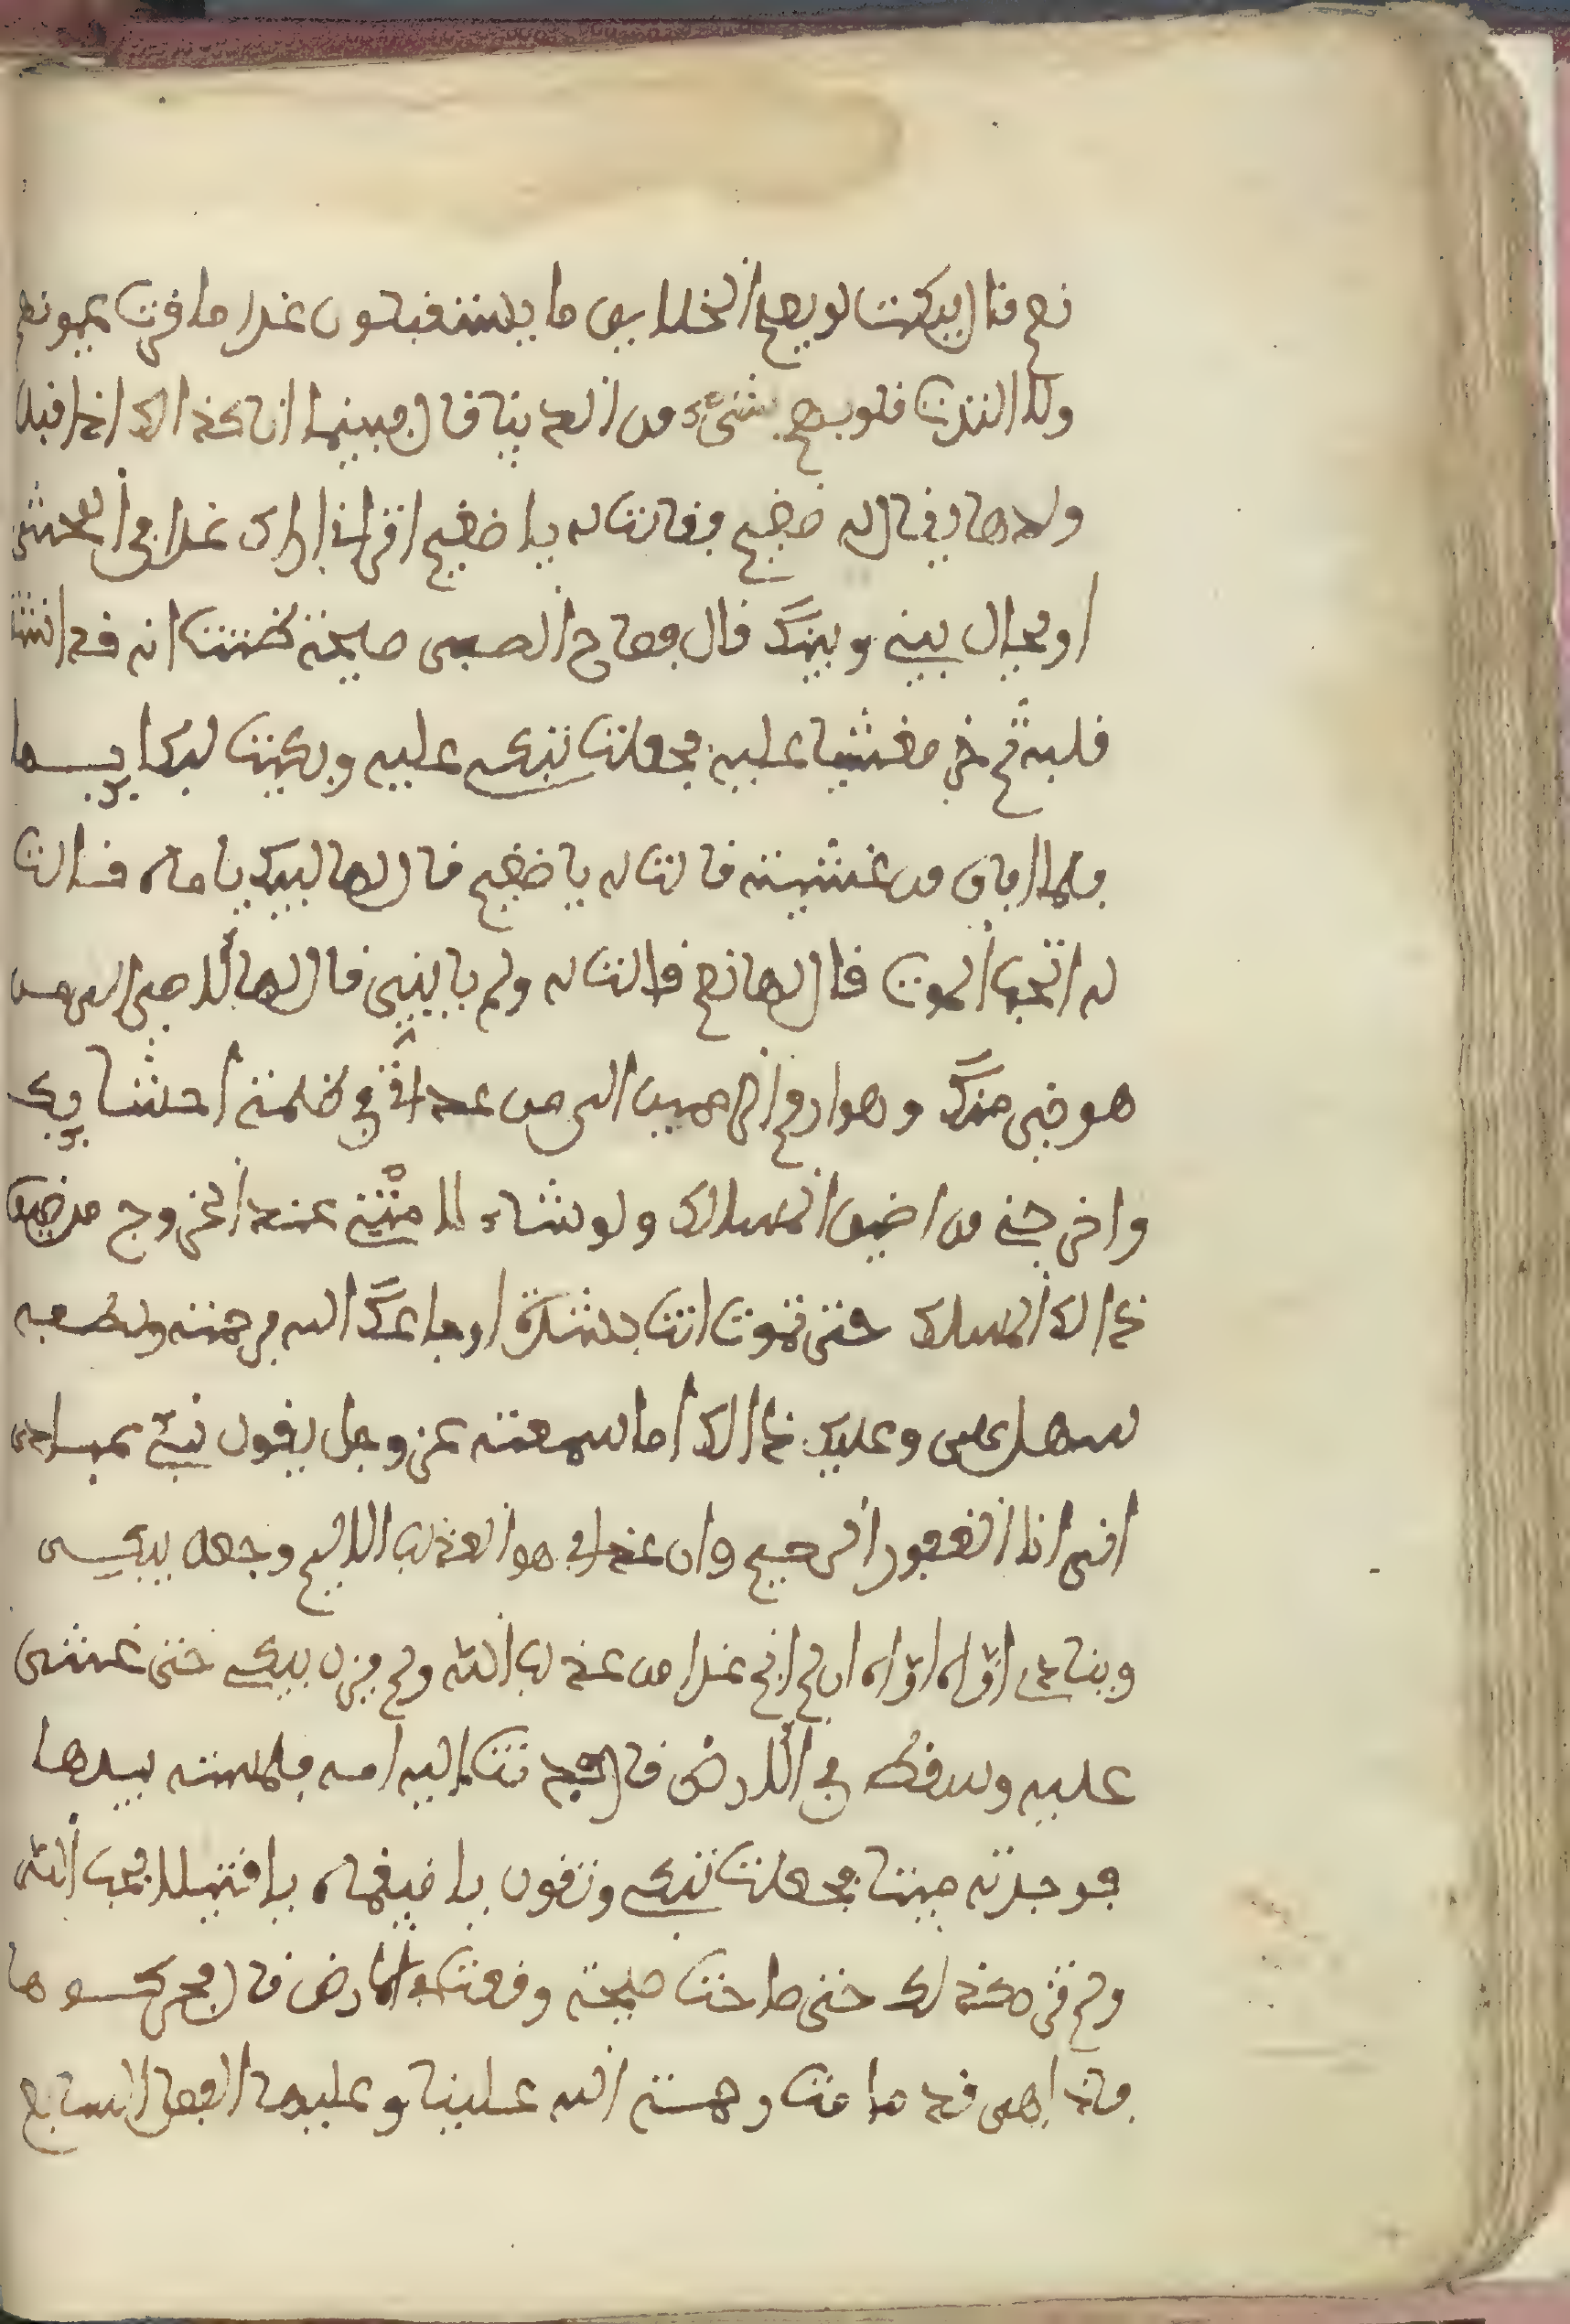 نعم قال فبكت لو يعلم الخلايق ما يستقبلون غدا ما قرت عيونهم
ولا التذت قلوبهم بشيء من الدنيا قال فبينما انا كذالك اذ اقبل
ولدها يقال له ضيغم فقالت له يا ضيغم اتراني اراك غدا في المحشر
او يحال بيني وبينك قال فصاح الصبي صيحة ظننت انه قد انشق
قلبه ثم خر مغشيا عليه فجعلت تبكي عليه وبكيت لبكايها
فلما افاق من غشيته قالت له يا ضيغم قال لها لبيك يا ماه قالت
له اتحب الموت قال لها نعم قالت له ولم يا بني قال لها لاصير الى من
هو خير منك وهو ارحم الرحمين الى من غذاني في ظلمة احشايك
واخرجني من اضيق المسالك ولو شاء لامتني عند الخروج من ضيق
ذالك المسلك حتى تموت انت بشدة اوجاعك الله برحمته ولطفه
سهل علي وعليك ذالك اما سمعته عز وجل يقول نبئ عبادي
اني انا الغفور الرحيم وان عذابي هو العذاب الاليم وجعل يبكي
وينادي اواه اواه ان لم انج غدا من عذاب الله ولم يزل يبكي حتى غشي
عليه وسقط في الارض قال فدنت اليه امه فلمسته بيدها
فوجدته ميتا فجعلت تبكي وتقول يا ضيغماه يا قتيلا بحب الله
ولم تزل كذلك حتى صاحت صيحة وقعت في الارض قال فحركوها
فاذا هي قد ماتت رحمة الله علينا وعليها الفصل السابع